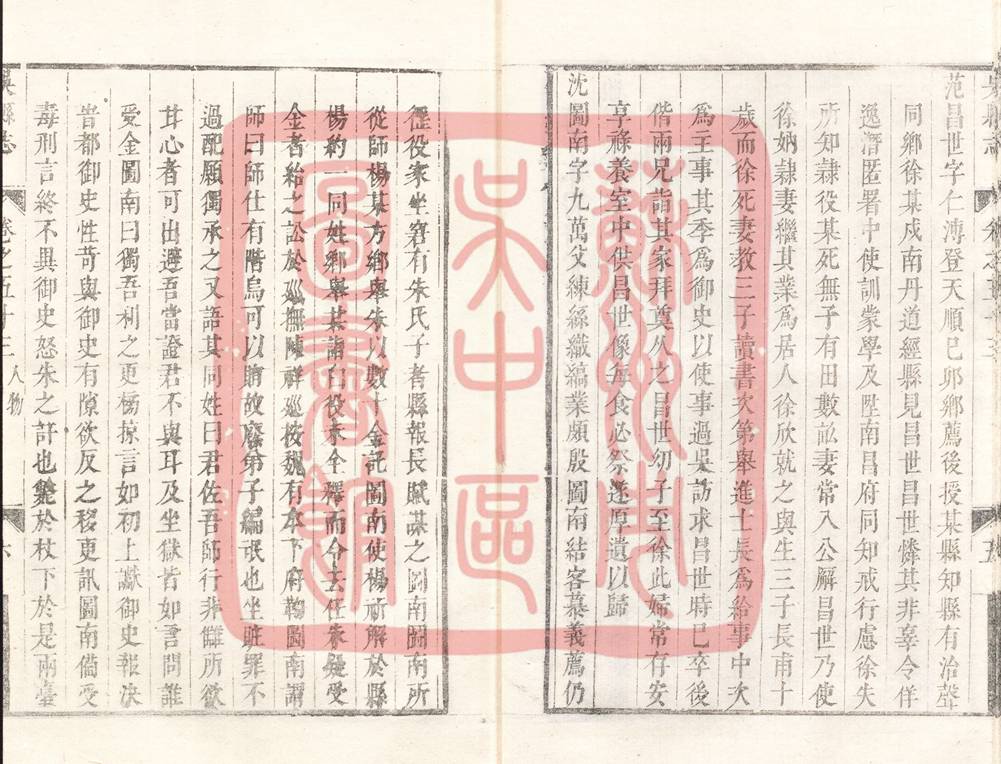 范昌世字仁溥登天順己卯鄉薦後授某縣知縣有治聲
同鄉徐某戍南丹道經縣見昌世昌世憐其非辜令佯
逸潛匿署中使訓蒙學及陞南昌府同知戒行慮徐失
所知隷役某死無子有田數訟妻常入公廨昌世乃使
徐納隷妻繼其業爲居人徐欣就之與生三子長甫十
歲而徐死妻教三子讀書次第舉進士長爲給事中次
爲主事其季爲御史以使事過吳訪求昌世時已卒後
偕兩兄詣其家拜奠久之昌世幼子至徐此婦常存安
享祿養室中供昌世像每食必祭遂厚遺以歸
沈圖南字九萬父練絲織縞業頗殷圖南結客慕義薦仍
徭役家坐窘有朱氏子者縣報長賦謀之圖南圖南所
從師楊某方鄉舉朱以數十金託圖南使楊祈解於縣
楊約一同姓鄉舉某詣白役未全釋而令去任家疑受
金者紿之訟於巡撫陳祥巡按魏有本下府鞫圖南謂
師曰師仕有階烏可以賄故廢弟子編氓也坐贓罪不
過配願獨承之又語其同姓曰君佐吾師行非讎所欲
甘心者可出避吾當證君不與耳及坐獄皆如言問誰
受金圖南曰獨吾利之更榜掠言如初上讞御史報決
眥都御史性苛與御史有隙欲反之移更訊圖南備受
毒刑言終不異御史怒朱之訐也斃於杖下於是兩臺
吳縣志
卷之五十三
人物
六
蘇州市
吳中區
圖書館